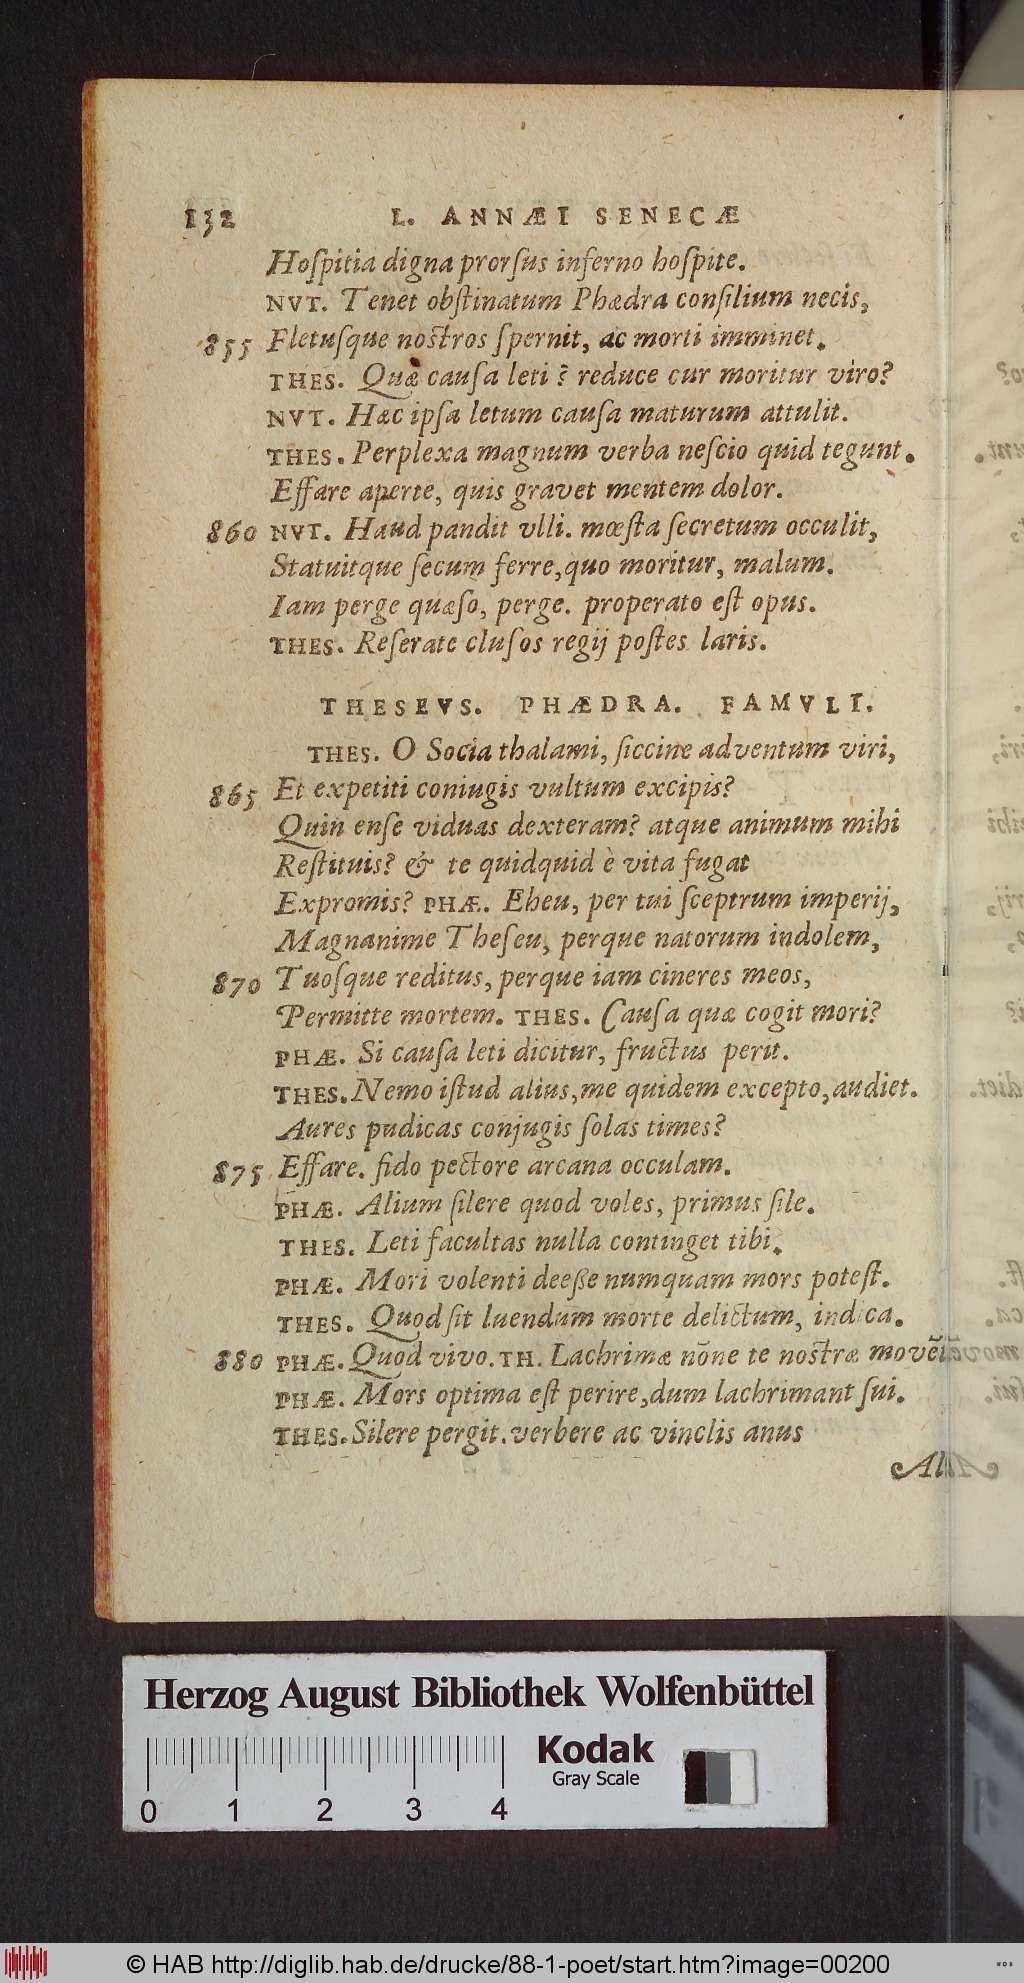 132 L. ANNÆI SENECÆ
Hoſpitia digna prorſus inferno hoſpite.
NVT. Tenet obſtinatum Phædra conſilium necis,
855 Fletuſque noſtros ſpernit, ac morti imminet.
THES. Quæ cauſa leti? reduce cur moritur viro?
NVT. Hæc ipſa letum cauſa maturum attulit.
THES. Perplexa magnum verba neſcio quid tegunt.
Effare aperte, quis gravet mentem dolor.
860 NVT. Haud pandit vlli. mœſta ſecretum occulit,
Statuitque ſecum ferre, quo moritur, malum.
Iam perge quæſo, perge. properato eſt opus.
THES. Reſerate cluſos regij poſtes laris.
THESEVS. PHÆDRA. FAMVLI.
THES. O Socia thalami, ſiccine adventum viri,
865 Et expetiti coniugis vultum excipis?
Quin enſe viduas dexteram? atque animum mihi
Reſtituis? & te quidquid è vita fugat
Expromis? PHÆ. Eheu, per tui ſceptrum imperij,
Magnanime Theſeu, perque natorum indolem,
870 Tuoſque reditus, perque iam cineres meos,
Permitte mortem. THES. Cauſa quæ cogit mori?
PHÆ. Si cauſa leti dicitur, fructus perit.
THES. Nemo iſtud alius, me quidem excepto, audiet.
Aures pudicas conjugis ſolas times?
875 Effare. fido pectore arcana occulam.
PHÆ. Alium ſilere quod voles, primus ſile.
THES. Leti facultas nulla continget tibi.
PHÆ. Mori volenti deeße numquam mors poteſt.
THES. Quod ſit luendum morte delictum, indica.
880 PHÆ. Quod vivo. TH. Lachrimæ nõne te noſtræ
PHÆ. Mors optima eſt perire, dum lachrimant ſui.
THES. Silere pergit. verbere ac vinclis anus
Herzog August Bibliothek Wolfenbüttel
Kodak
Gray Scale
0 1 2 3 4
© HAB http://diglib.hab.de/drucke/88-1-poet/start.htm?image=00200